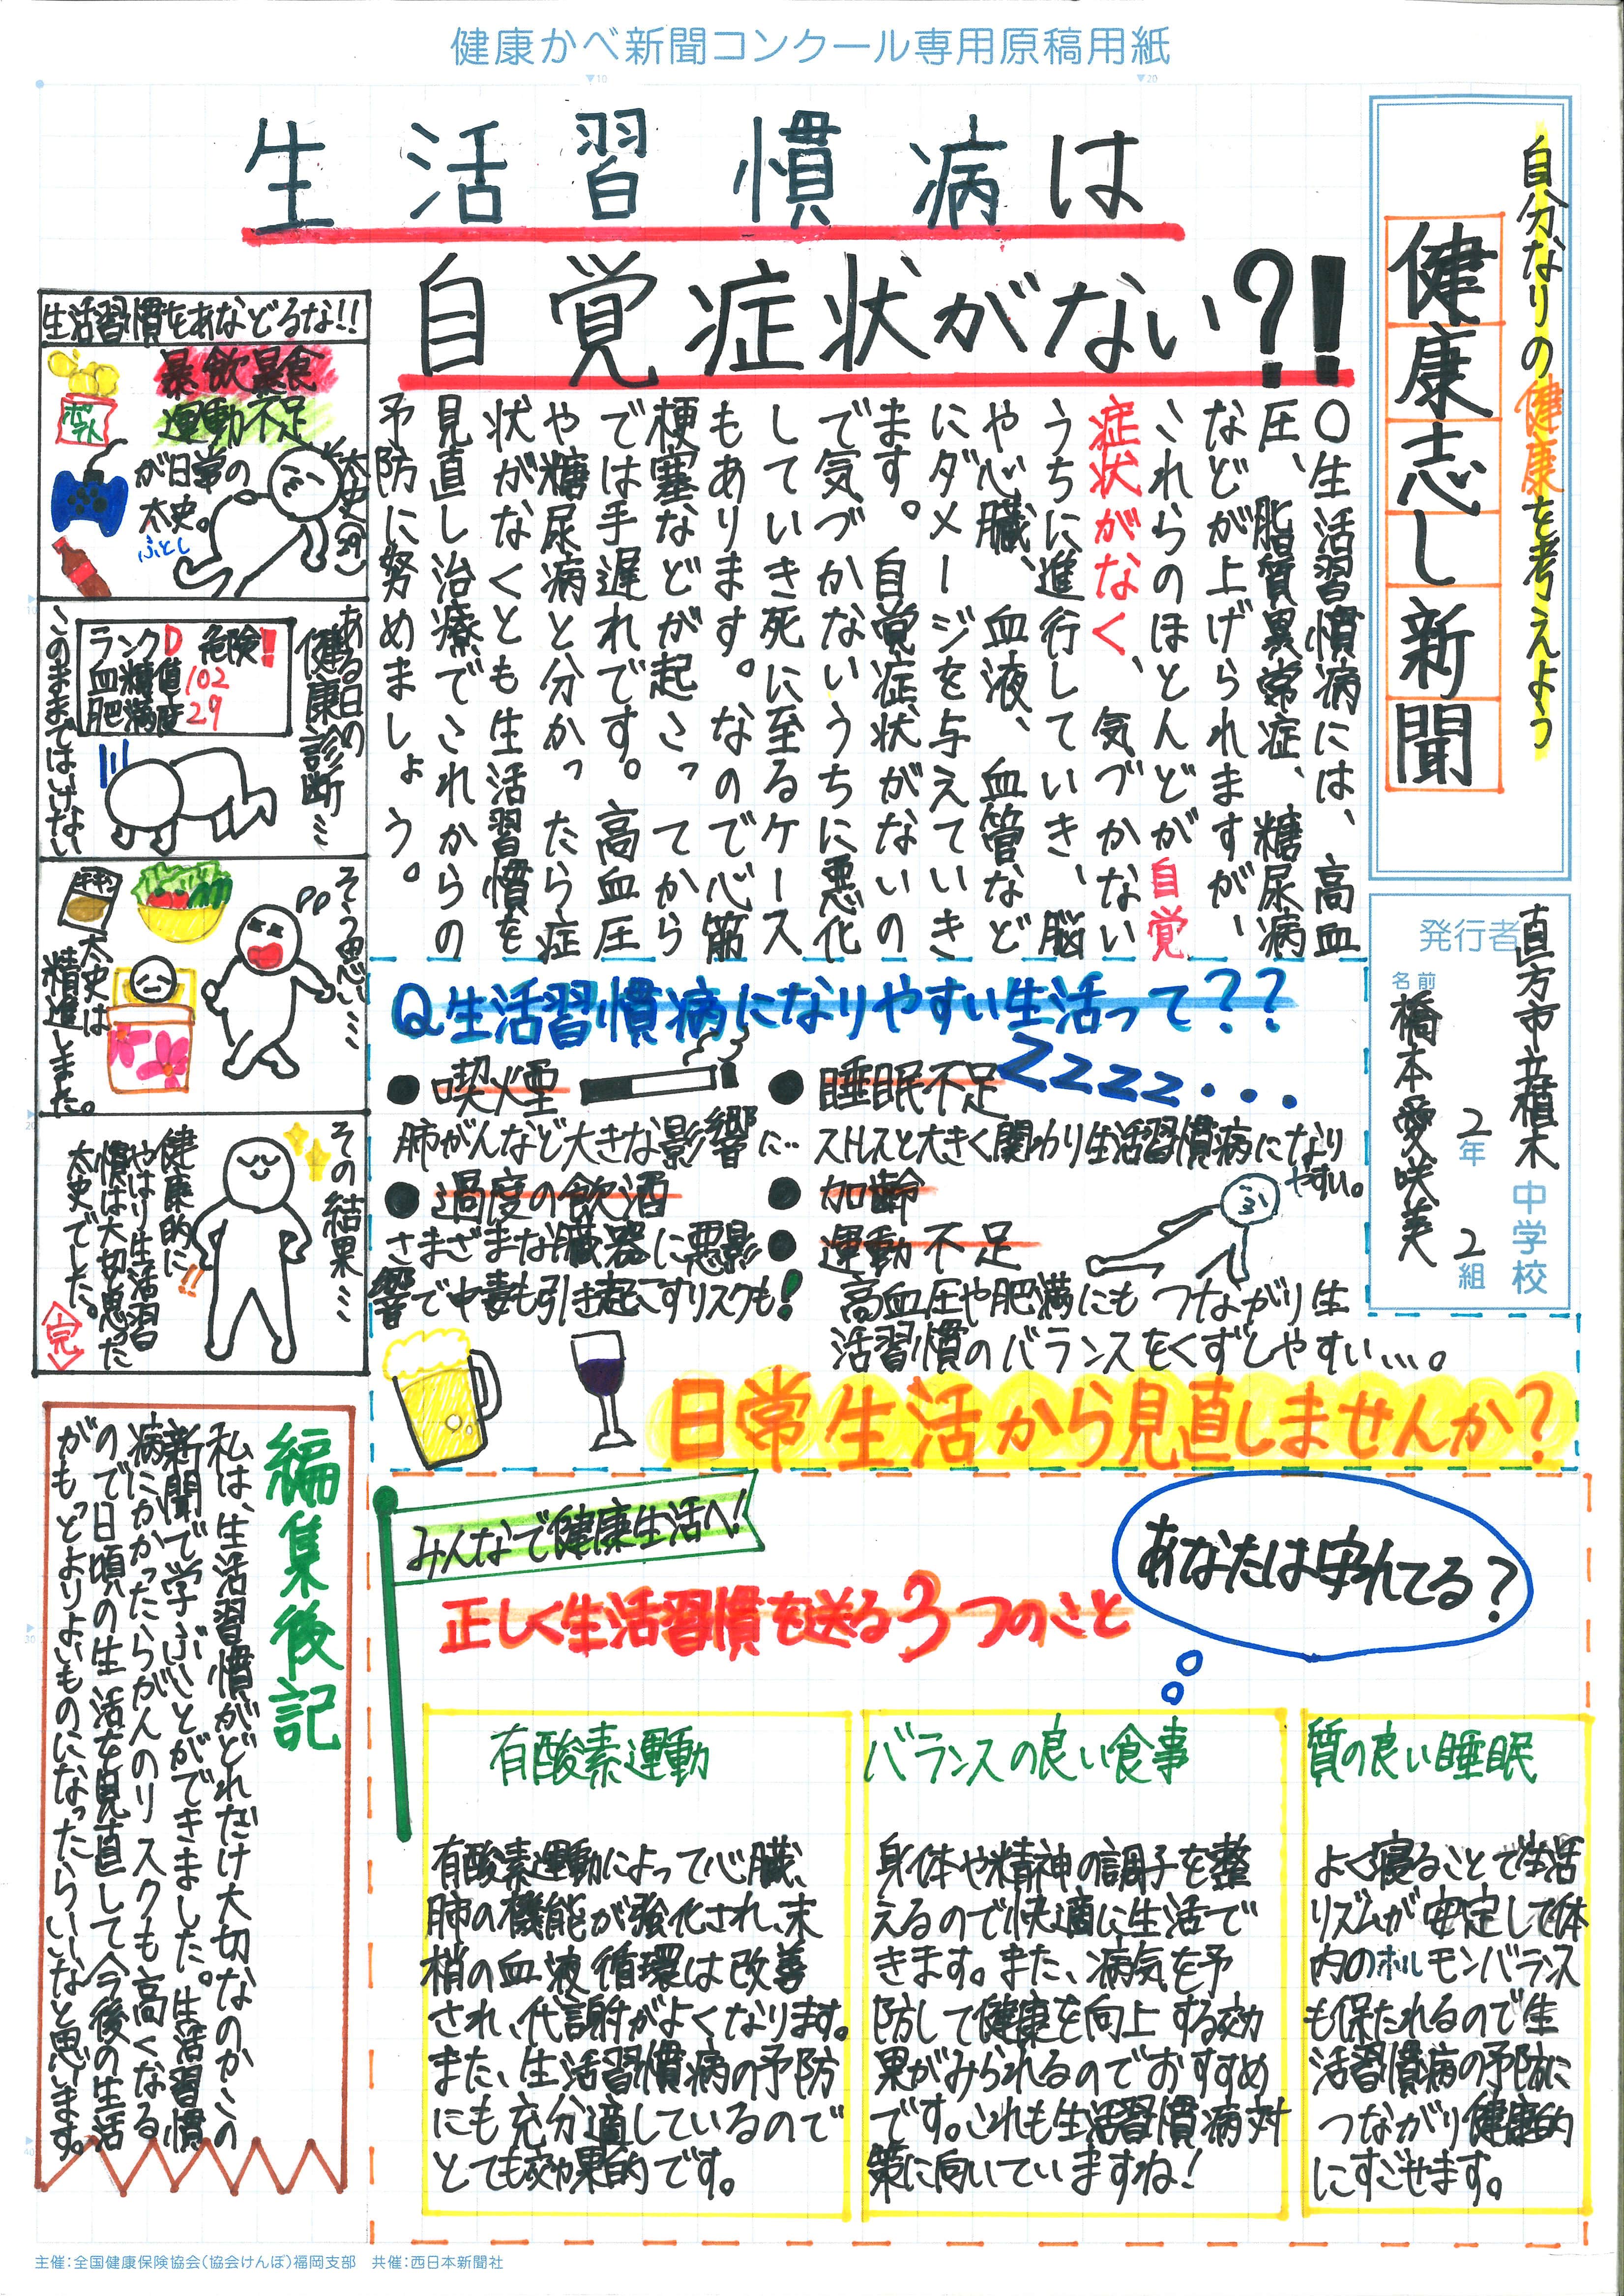 健康かべ新聞コンクール専用原稿用紙
自分なりの健康を考えよう
健康志し新聞
発行者
直方市立植木中学校
2年 2組
名前
橋本愛咲美
生活習慣病は
自覚症状がない?!
○生活習慣病には、高血
圧、脂質異常症、糖尿病
などが上げられますが、
これらのほとんどが自覚
症状がなく、気づかない
うちに進行していき、脳
や心臓、血液、血管など
にダメージを与えていき
ます。自覚症状がないの
で気づかないうちに悪化
していき死に至るケース
もあります。なので心筋
梗塞などが起こってから
では手遅れです。高血圧
や糖尿病と分かったら症
状がなくとも生活習慣を
見直し治療でこれからの
予防に努めましょう。
生活習慣をあなどるな!!
暴飲暴食
運動不足
が日常の
太史。
ふとし
太史(39)
ポテト
ある日の
健康診断…
ランクD 危険!
血糖値102
肥満度29
このままではいけない
そう思い……
太史は
精進しました。
その結果…
健康的に!!
やはり生活習
慣は大切と思った
太史でした。
完
Q生活習慣病になりやすい生活って??
●喫煙
肺がんなど大きな影響に…
●過度の飲酒
さまざまな臓器に悪影
響で中毒も引き起こすリスクも!
●睡眠不足 Zzzz...
ストレスと大きく関わり生活習慣病になり
やすい。
●加齢
●運動不足
高血圧や肥満にもつながり生
活習慣のバランスをくずしやすい…。
日常生活から見直しませんか?
みんなで健康生活へ!
正しく生活習慣を送る3つのこと
あなたは守れてる?
有酸素運動
有酸素運動によって心臓、
肺の機能が強化され、末
梢の血液循環は改善
され、代謝がよくなります。
また、生活習慣病の予防
にも充分適しているので
とても効果的です。
バランスの良い食事
身体や精神の調子を整
えるので快適に生活で
きます。また、病気を予
防して健康を向上する効
果がみられるのでおすすめ
です。これも生活習慣病対
策に向いていますね!
質の良い睡眠
よく寝ることで生活
リズムが安定して体
内のホルモンバランス
も保たれるので生
活習慣病の予防に
つながり健康的
にすごせます。
編集後記
私は、生活習慣がどれだけ大切なのかこの
新聞で学ぶことができました。生活習慣
病にかかったらがんのリスクも高くなる
ので日頃の生活を見直して今後の生活
がもっとよりよいものになったらいいなと思います。
主催:全国健康保険協会(協会けんぽ)福岡支部 共催:西日本新聞社